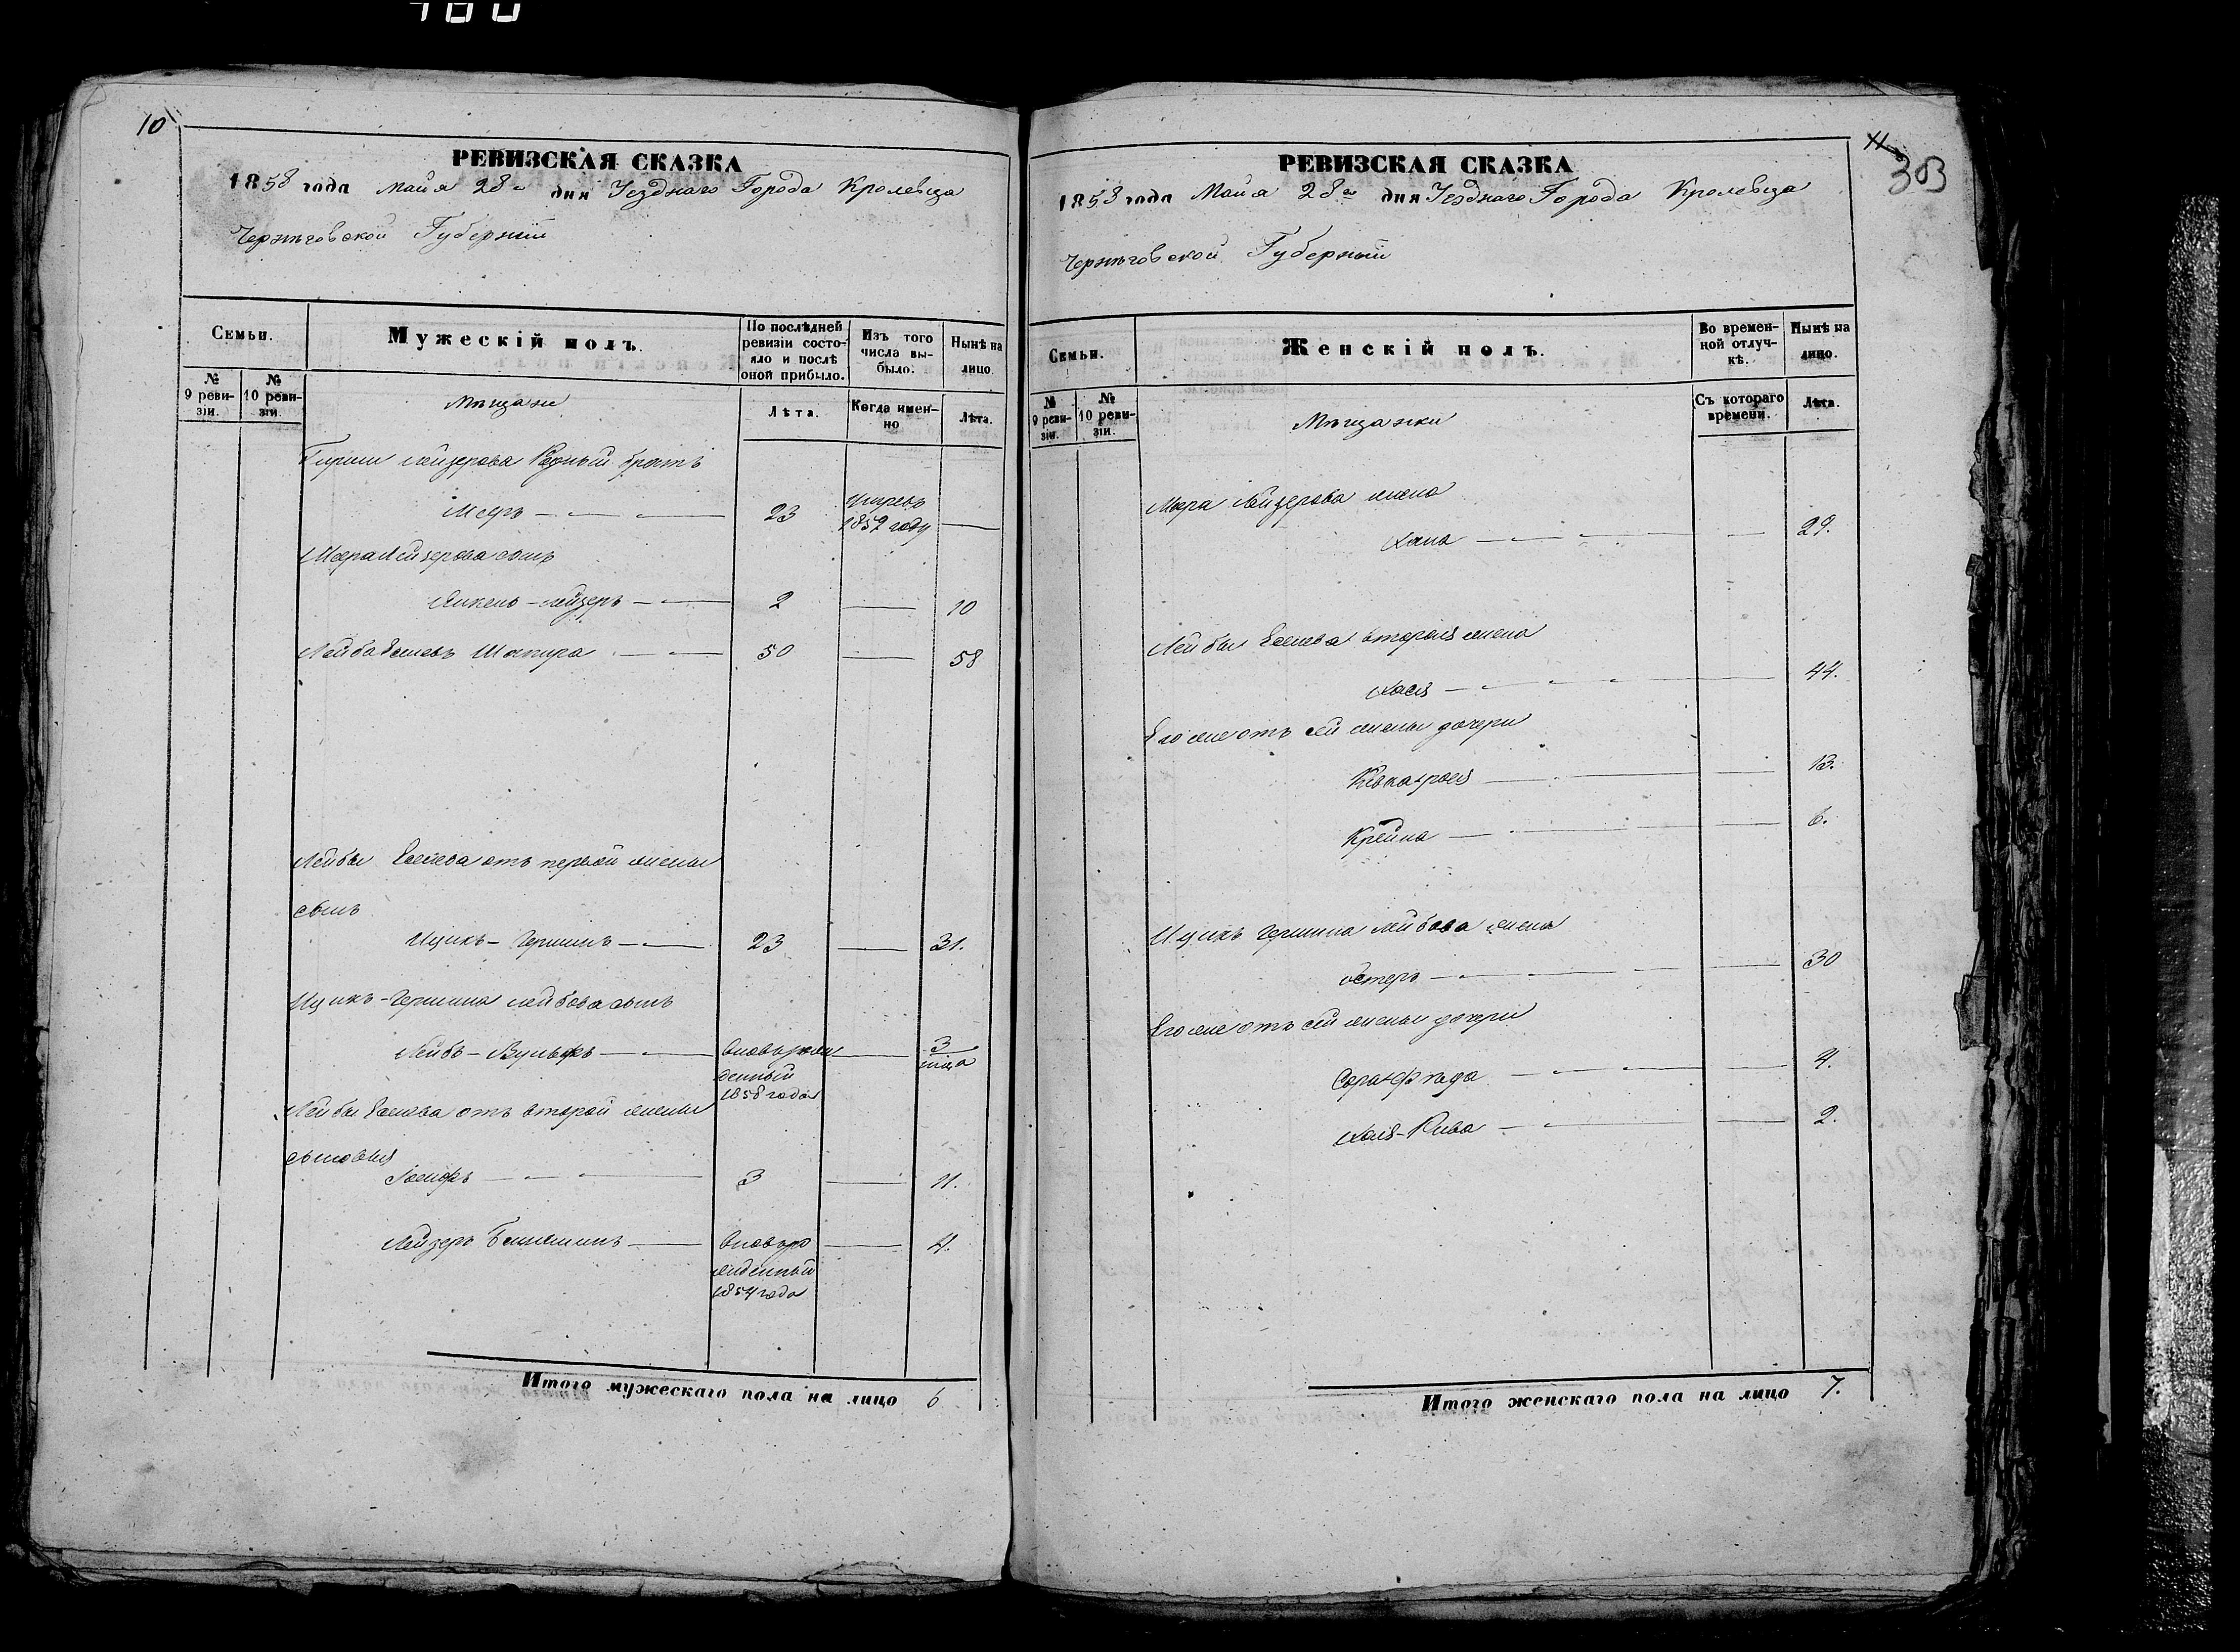 10
РЕВИЗСКАЯ СКАЗКА
1858 года Майя 28го дня Уезднаго Города Кролевца
Черниговской Губернии
Семьи.
Мужескій полъ.
По послѣдней ревизіи состояло и послѣ оной прибыло.
Изъ того числа выбыло.
Нынѣ на лицо.
№ 9 ревизіи.
№ 10 ревизіи.
Мѣщане
Лѣта.
Когда именно
Лѣта.
Гирши Лейзерова Родный братъ
Меръ 23 умреъ 1852 году
Мера Лейзерова сынъ
Янкель-Лейзеръ 2 10
Лейба Есиевъ Шапира 50 58
Лейбы Есиева отъ первой жены
сынъ
Ицикъ-Гершинъ 23 31.
Ицикъ-Гершина Лейбова сынъ
Лейбъ-Вульфъ вновьрожденный 1858 года 3 мца
Лейбы Есиева отъ второй жены
сыновья
Іосифъ 3 11.
Лейзеръ Беньяминъ вновьрожденный 1854 года 4.
Итого мужескаго пола на лицо 6
11
303
РЕВИЗСКАЯ СКАЗКА
1858 года Майа 28го дня Уезднаго Города Кролевца
Черниговской Губернии
Семьи.
Женскій полъ.
Во временной отлучкѣ.
Нынѣ на лицо.
№ 9 ревизіи.
№ 10 ревизіи.
Мѣщанки
Съ котораго времени.
Лѣта.
Мера Лейзерова жена
Хана 29.
Лейбы Есиева вторая жена
Хася 44.
Его же отъ сей жены дочери
13.
Крейна 6.
Ицикъ Гершина Лейбова жена
Естеръ 30
Его же отъ сей жены дочери
Сора-Фрада 4.
Хая-Рива 2.
Итого женскаго пола на лицо 7.